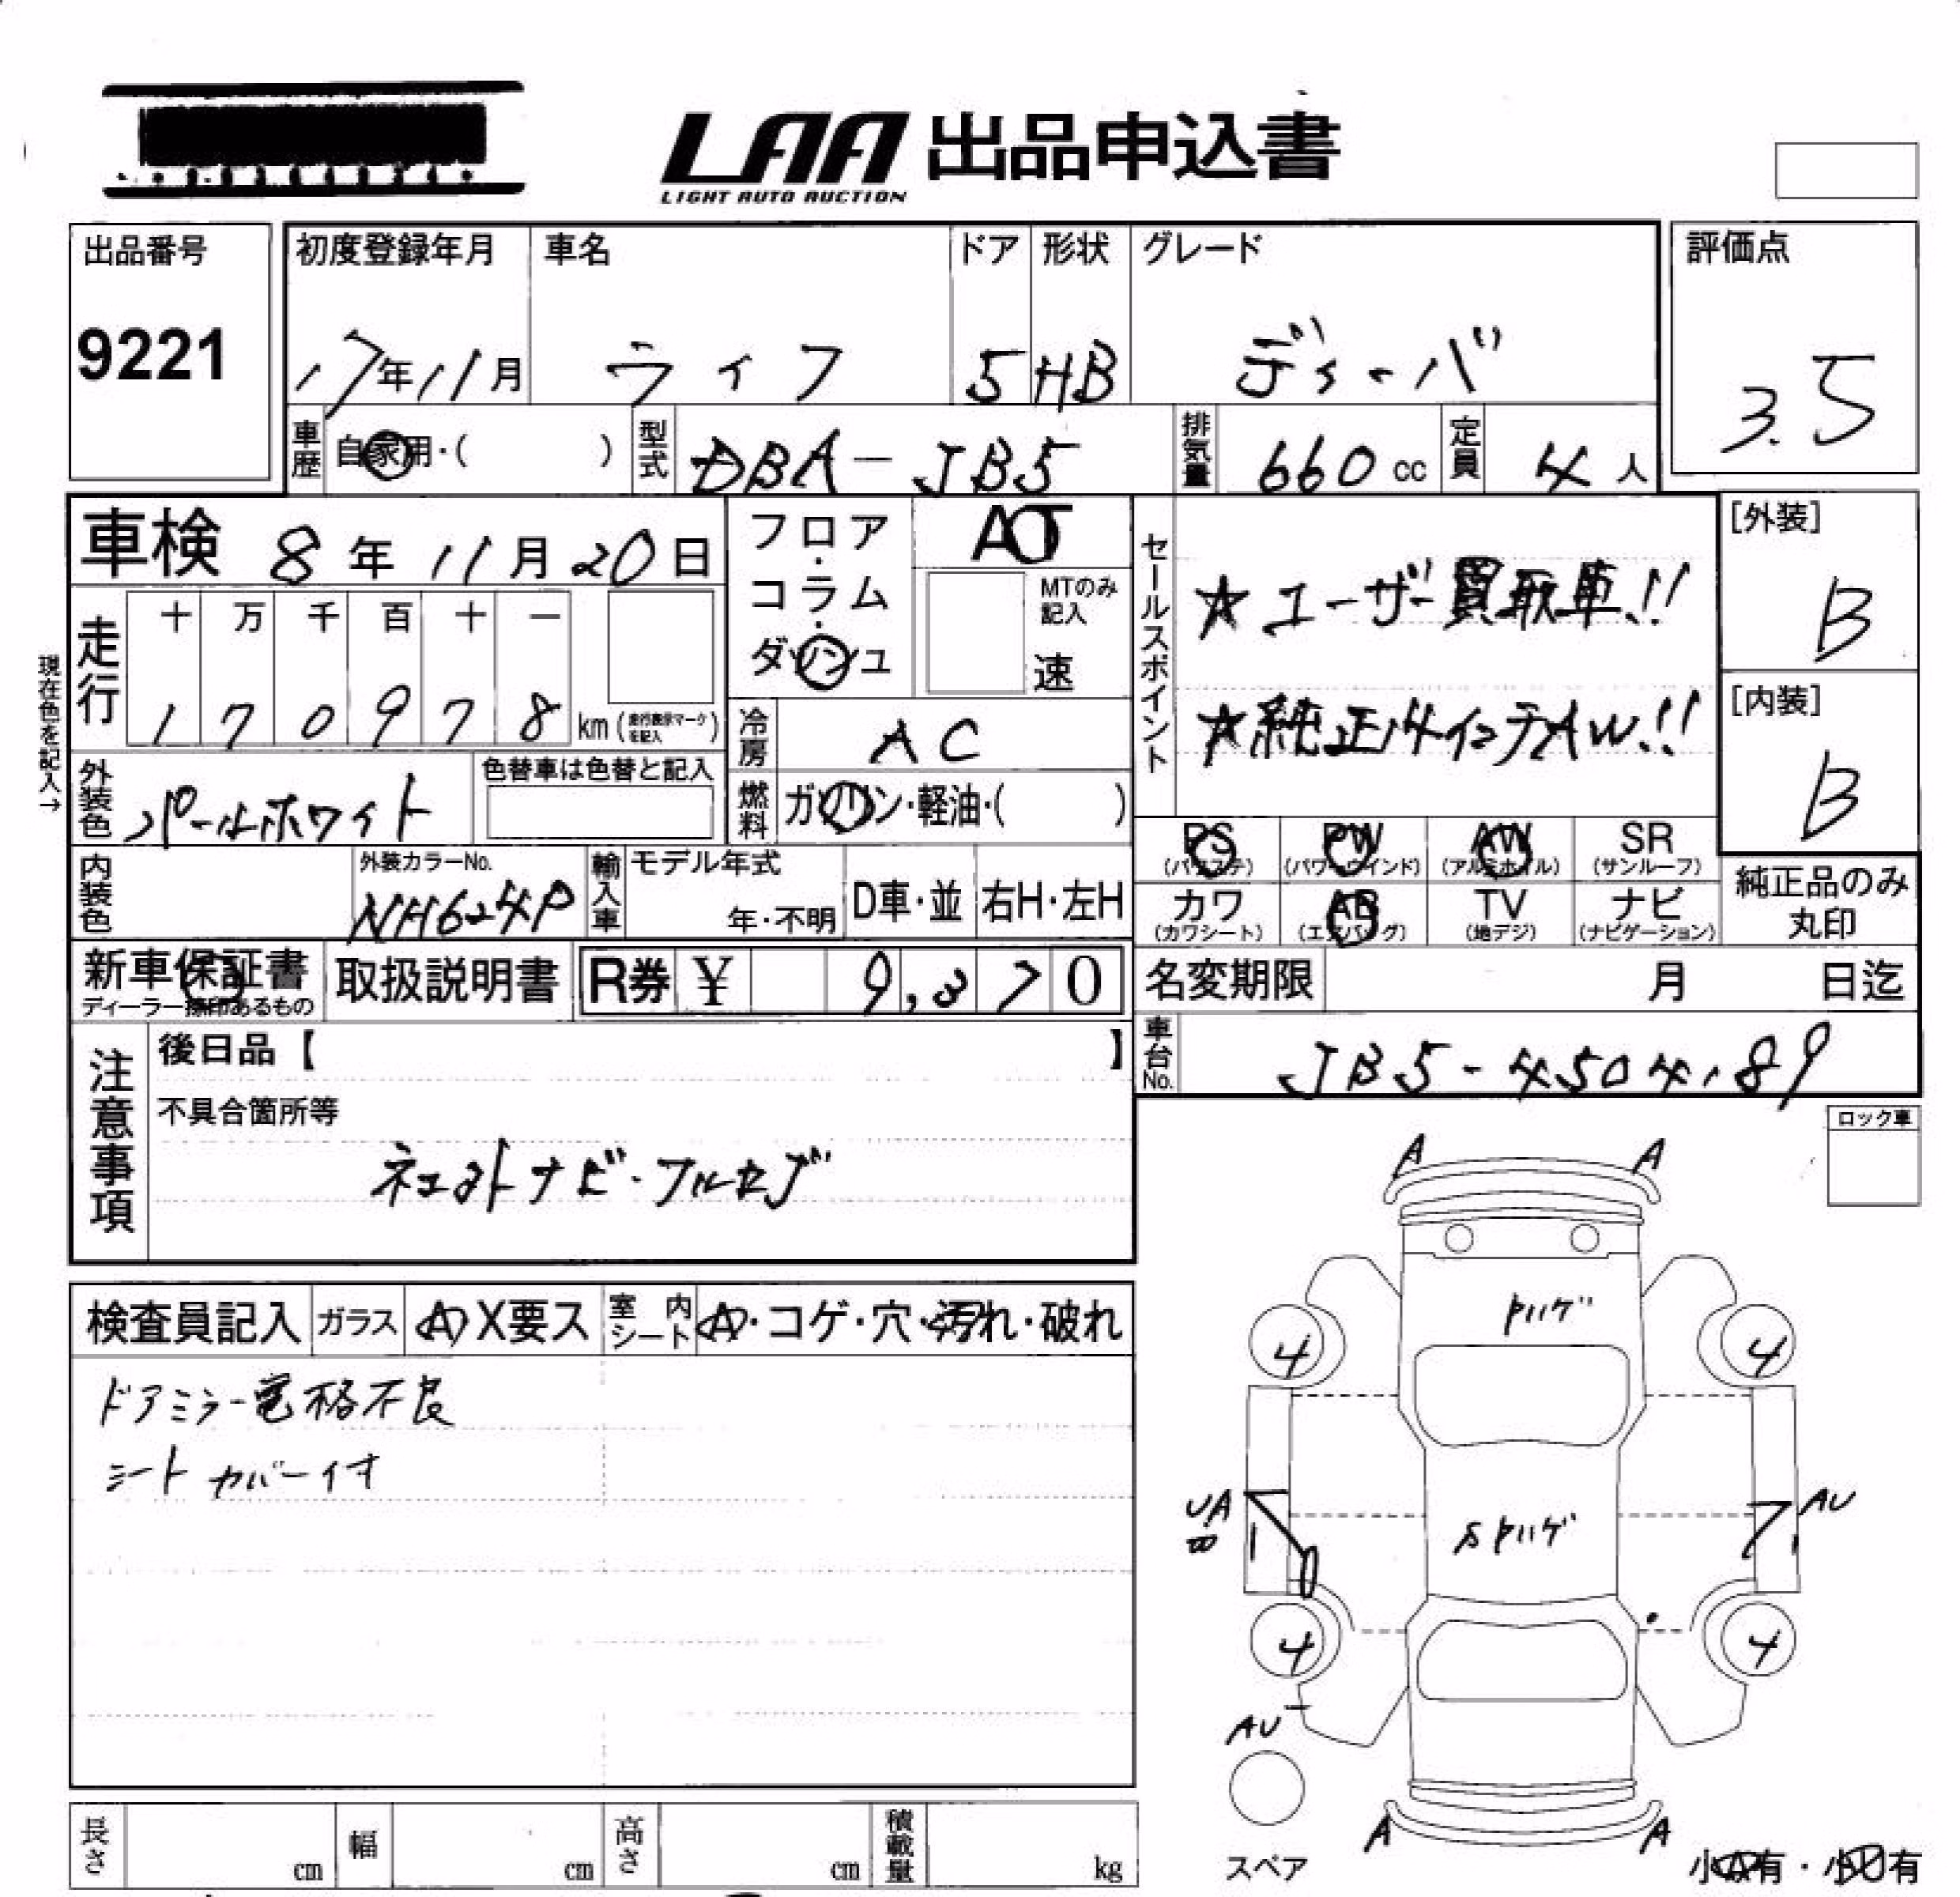 LAA 出品申込書
LIGHT AUTO AUCTION
出品番号
9221
初度登録年月
17年11月
車名
ライフ
ドア
5
形状
HB
グレード
ディーバ
評価点
3.5
車歴
自家用・( )
型式
DBA-JB5
排気量
660 cc
定員
4 人
車検 8年 11月 20日
フロア・コラム・ダッシュ
AT
MTのみ記入
速
セールスポイント
★ユーザー買取車!!
★純正14インチAW!!
[外装]
B
[内装]
B
現在色を記入→
走行
十 万 千 百 十 一
1 7 0 9 7 8 km (走行表示マークを記入)
冷房
AC
外装色
パールホワイト
色替車は色替と記入
燃料
ガソリン・軽油・( )
PS
(パワステ)
PW
(パワーウインド)
AW
(アルミホイル)
SR
(サンルーフ)
カワ
(カワシート)
AB
(エアバッグ)
TV
(地デジ)
ナビ
(ナビゲーション)
純正品のみ
丸印
内装色
外装カラーNo.
NH624P
輸入車
モデル年式
年・不明
D車・並
右H・左H
新車保証書
ディーラー捺印あるもの
取扱説明書
R券 ¥ 9,370
名変期限 月 日迄
車台No.
JB5-4504189
注意事項
後日品【 】
不具合箇所等
ネエクトナビ・フルセグ
ロック車
検査員記入
ガラス
A X要ス
室内シート
A・コゲ・穴・汚れ・破れ
ドアミラー電格不良
シートカバー付
A A
トリゲ
4 4
UA
AU
Sトリゲ
4 4
AU
スペア
A A
小A有・小U有
長さ cm
幅 cm
高さ cm
積載量 kg